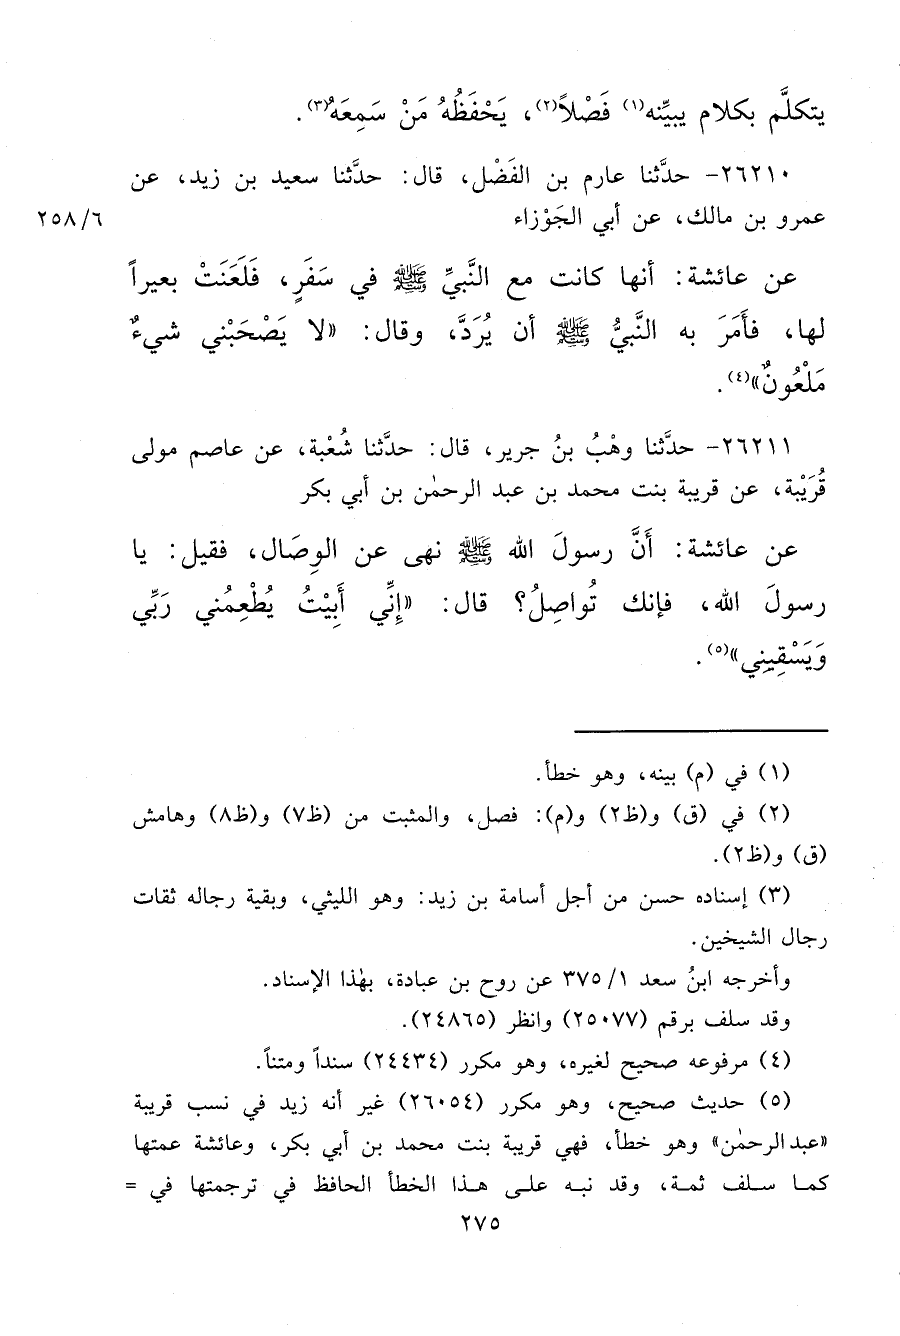 يتكلَّم بكلام يبيِّنه(١) فَصْلاً(٢)، يَحْفَظُهُ مَنْ سَمِعَهُ(٣).
٢٦٢١٠- حدَّثنا عارم بن الفَضْل، قال: حدَّثنا سعيد بن زيد، عن
عمرو بن مالك، عن أبي الجَوْزاء
٢٥٨/٦
عن عائشة: أنها كانت مع النَّبيِّ ﷺ في سَفَرٍ، فَلَعَنَتْ بعيراً
لها، فأَمَرَ به النَّبيُّ ﷺ أن يُرَدَّ، وقال: «لا يَصْحَبْني شيءٌ
مَلْعُونٌ»(٤).
٢٦٢١١- حدَّثنا وهْبُ بنُ جرير، قال: حدَّثنا شُعْبة، عن عاصم مولى
قُرَيْبة، عن قريبة بنت محمد بن عبد الرحمٰن بن أبي بكر
عن عائشة: أَنَّ رسولَ الله ﷺ نهى عن الوِصَال، فقيل: يا
رسولَ الله، فإنك تُواصِلُ؟ قال: «إِنِّي أَبِيْتُ يُطْعِمُني رَبِّي
وَيَسْقِيني»(٥).
(١) في (م) بينه، وهو خطأ.
(٢) في (ق) و(ظ٢) و(م): فصل، والمثبت من (ظ٧) و(ظ٨) وهامش
(ق) و(ظ٢).
(٣) إسناده حسن من أجل أسامة بن زيد: وهو الليثي، وبقية رجاله ثقات
رجال الشيخين.
وأخرجه ابنُ سعد ٣٧٥/١ عن روح بن عبادة، بهٰذا الإسناد.
وقد سلف برقم (٢٥٠٧٧) وانظر (٢٤٨٦٥).
(٤) مرفوعه صحيح لغيره، وهو مكرر (٢٤٤٣٤) سنداً ومتناً.
(٥) حديث صحيح، وهو مكرر (٢٦٠٥٤) غير أنه زيد في نسب قريبة
«عبد الرحمٰن» وهو خطأ، فهي قريبة بنت محمد بن أبي بكر، وعائشة عمتها
كما سلف ثمة، وقد نبه على هذا الخطأ الحافظ في ترجمتها في =
٢٧٥